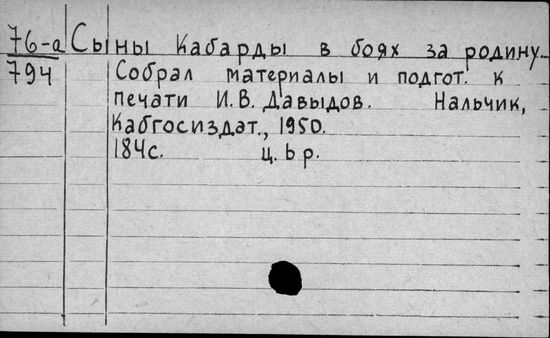 76-а Сыны Кабарды в боях за родину.
794 Собрал материалы и подгот. к
печати И.В. Давыдов. Нальчик,
Кабгосиздат., 1950.
184с. ц. 6 р.